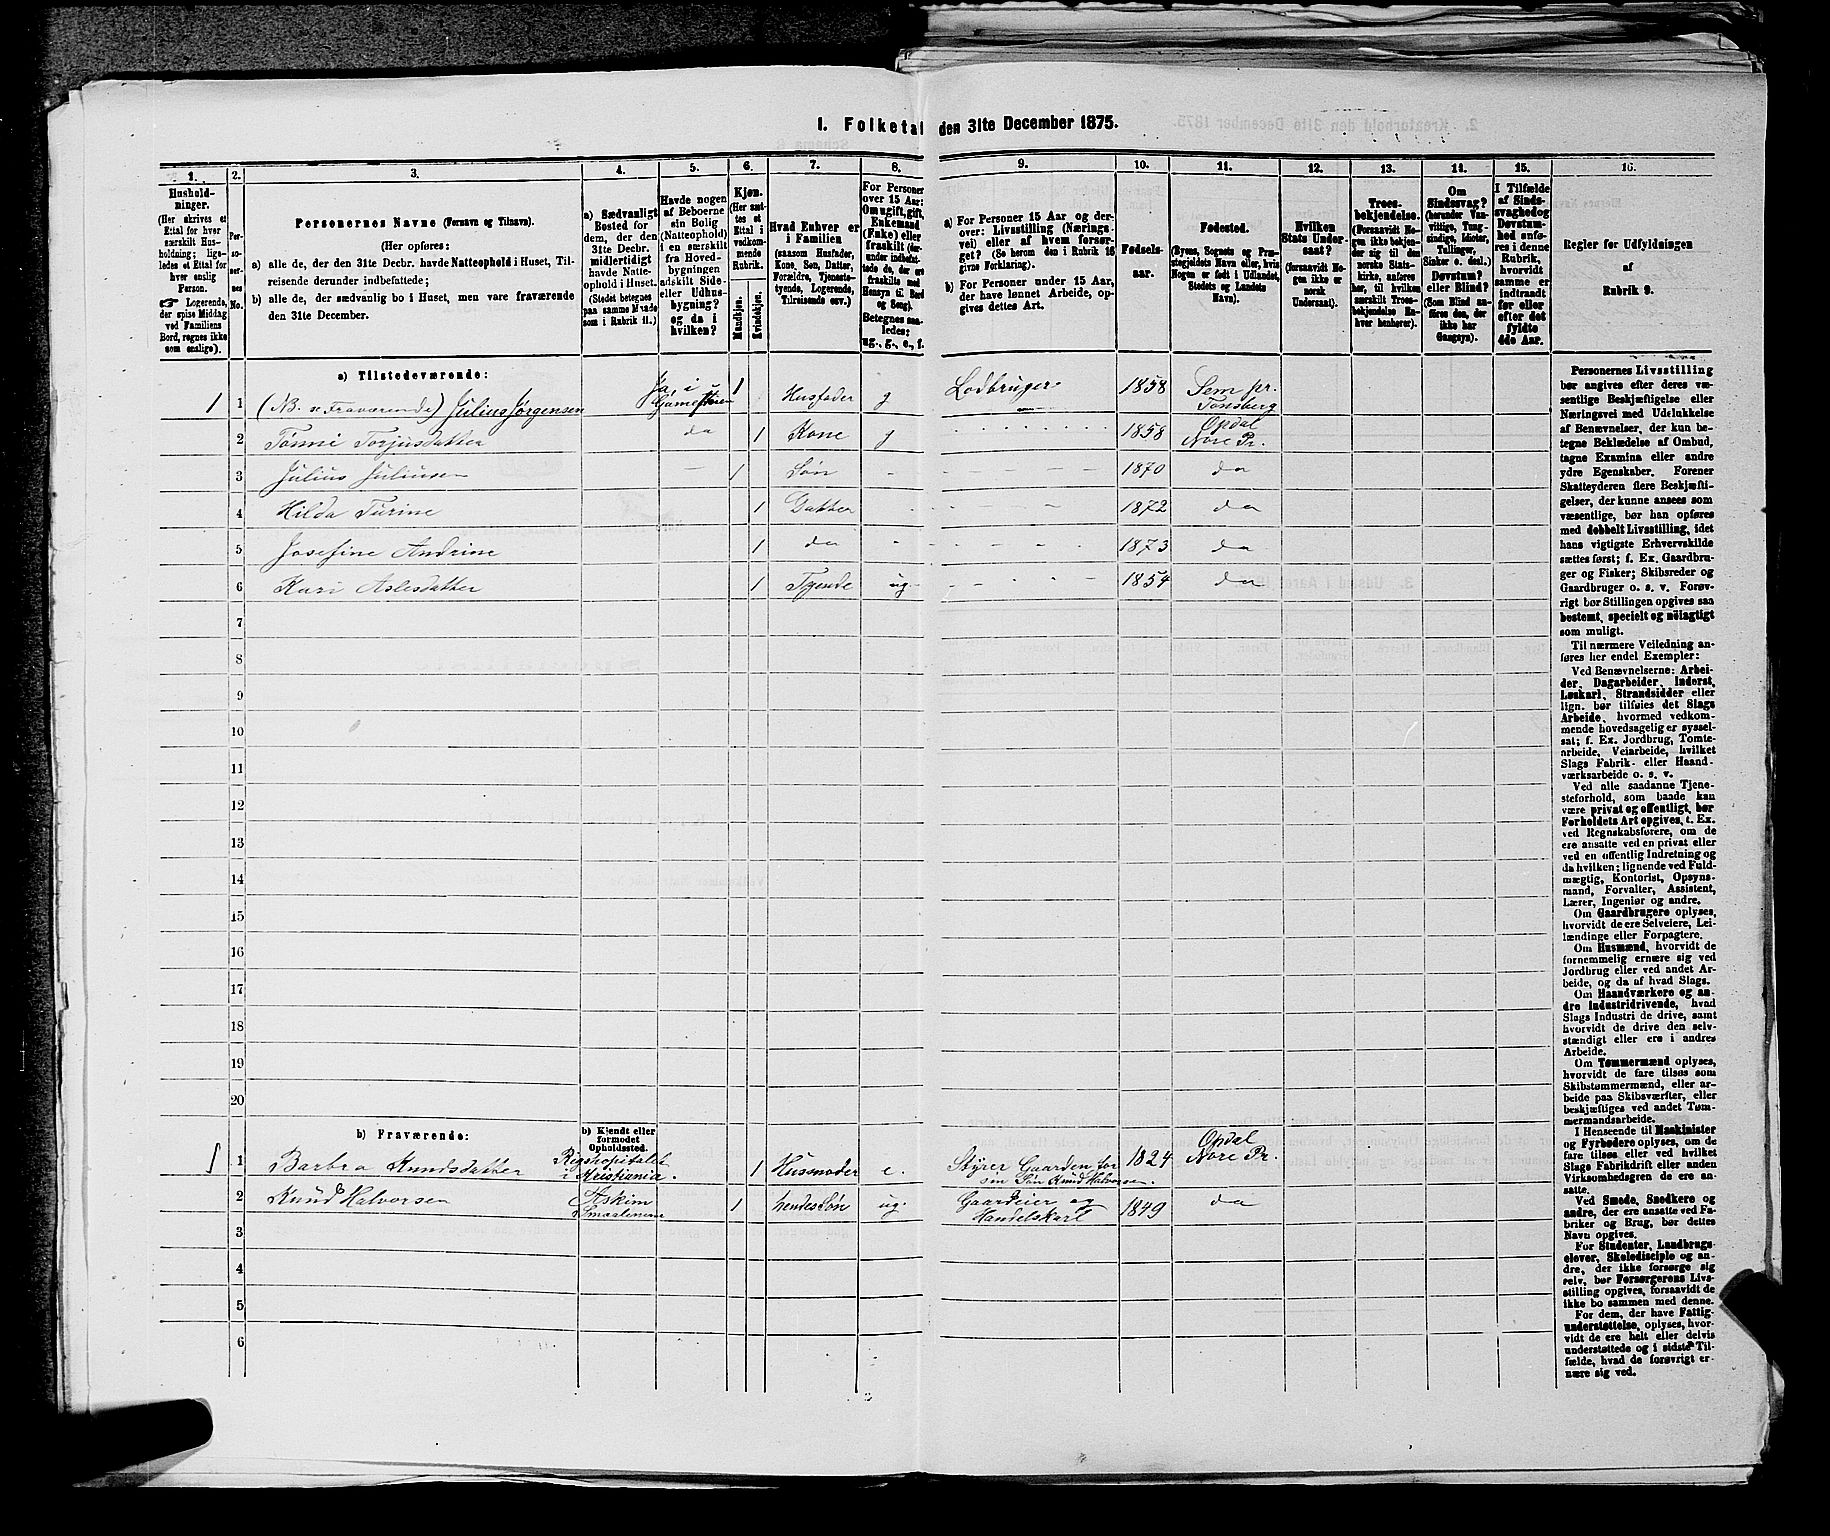 1. Folketal den 31te December 1875.
1.
2.
3.
4.
5.
6.
7.
8.
9.
10.
11.
12.
13.
14.
15.
16.
Hushold-
ninger.
(Her skrives et
Ettal for hver
særskilt Hus-
holdning; lige-
ledes et Ettal for
hver enslig
Person.
☞ Logerende,
der spise Middag
ved Familiens
Bord, regnes ikke
som enslige).
Per-
so-
ner-
nes
No.
Personernes Navne (Fornavn og Tilnavn).
(Her opføres:
a) alle de, der den 31te Decbr. havde Natteophold i Huset, Til-
reisende derunder indbefattede;
b) alle de, der sædvanlig bo i Huset, men vare fraværende
den 31te December.
a) Sædvanligt
Bosted for
dem, der den
31te Decbr.
midlertidigt
havde Natte-
ophold i Huset.
(Stedet betegnes
paa samme Maade
som i Rubrik 11.)
Havde nogen
af Beboerne
sin Bolig
(Natteophold)
i en særskilt
fra Hoved-
bygningen
adskilt Side-
eller Udhus-
bygning?
og da i
hvilken?
Kjøn.
(Her sæt-
tes et
Ettal i
vedkom-
mende
Rubrik.
Mandkjøn.
Kvindekjøn.
Hvad Enhver er
i Familien
(saasom Husfader,
Kone, Søn, Datter,
Forældre, Tjeneste-
tyende, Logerende,
Tilreisende osv.)
For Personer
over 15 Aar:
Om ugift, gift,
Enkemand
(Enke) eller
fraskilt (her-
under indbefat-
tede de, der ere
fraskilte med
Hensyn til Bord
og Seng).
Betegnes saa-
ledes:
ug., g., e., f.
a) For Personer 15 Aar og der-
over: Livsstilling (Nærings-
vei) eller af hvem forsør-
get? (Se herom den i Rubrik 16
givne Forklaring).
b) For Personer under 15 Aar,
der have lønnet Arbeide, op-
gives dettes Art.
Fødsels-
aar.
Fødested.
(Byens, Sognets og Præ-
stegjeldets Navn eller, hvis
Nogen er født i Udlandet,
Stedets og Landets
Navn).
Hvilken
Stats Under-
saat?
(forsaavidt No-
gen ikke er
norsk
Undersaat).
Troes-
bekjendelse.
(Forsaavidt No-
gen ikke bekjen-
der sig til den
norske Stats-
kirke, anføres
her, til hvilken
særskilt Troes-
bekjendelse En-
hver henhører).
Om
Sindssvag?
(herunder Van-
vittige, Tung-
sindige, Idioter,
Tullinger,
Sinker o. desl.)
Døvstum?
eller Blind?
(Som Blind an-
føres den, der
ikke har
Gangsyn).
I Tilfælde
af Sinds-
svaghed og
Døvstum-
hed anfø-
res i denne
Rubrik,
hvorvidt
samme er
indtraadt
før eller
efter det
fyldte
4de Aar.
Regler for Udfyldningen
af
Rubrik 9.
a) Tilstedeværende:
1 1 (NB se Fraværende) Julius Jørgensen Ja, i 1 Husfader g Lodbruger 1858 Sem pr. Tønsberg
2 Tønni Torjusdatter do 1 Kone g 1858 Opdal Nore Pr.
3 Julius Juliusen – 1 Søn - 1870 do
4 Hilda Turine 1 Datter - 1872 do
5 Josefine Andrine 1 do - 1873 do
6 Kari Aslesdatter 1 Tyende ug 1854 do
7
8
9
10
11
12
13
14
15
16
17
18
19
20
b) Fraværende:
b) Kjendt eller
formodet
Opholdssted.
1 1 Barbra Knudsdatter Rigshospitalet i Kristiania. 1 Husmoder e. Styrer Gaarden for sin Søn Knud Halvorsen. 1824 Opdal Nore Pr.
2 Knud Halvorsen Askim Smaalenene 1 hendes Søn ug. Gaardeier og Handelskarl 1849 do
3
4
5
6
Personernes Livsstilling
bør angives efter deres væ-
sentlige Beskjæftigelse eller
Næringsvei med Udelukkelse
af Benævnelser, der kun be-
tegne Beklædelse af Ombud,
tagne Examina eller andre
ydre Egenskaber. Forener
Skatteyderen flere Beskjæfti-
gelser, der kunne ansees som
væsentlige, bør han opføres
med dobbelt Livsstilling, idet
hans vigtigste Erhvervskilde
sættes først; f. Ex. Gaardbru-
ger og Fisker; Skibsreder og
Gaardbruger o. s. v. Forøv-
rigt bør Stillingen opgives saa
bestemt, specielt og nøiagtigt
som muligt.
Til nærmere Veiledning an-
føres her endel Exempler:
Ved Benævnelserne: Arbei-
der, Dagarbeider, Inderst,
Løskarl, Strandsidder eller
lign. bør tilføies det Slags
Arbeide, hvormed vedkom-
mende hovedsagelig er syssel-
sat; f. Ex. Jordbrug, Tomte-
arbeide, Veiarbeide, hvilket
Slags Fabrik- eller Haand-
værksarbeide o. s. v.
Ved alle saadanne Tjene-
steforhold, som baade kan
være privat og offentligt, bør
Forholdets Art opgives, t. Ex.
ved Regnskabsførere, om de
ere ansatte ved en privat eller
ved en offentlig Indretning og
da hvilken; lignende ved Fuld-
mægtig, Kontorist, Opsyns-
mand, Forvalter, Assistent,
Lærer, Ingeniør og andre.
Om Gaardbrugere oplyses,
hvorvidt de ere Selveiere, Lei-
lændinge eller Forpagtere.
Om Husmænd, hvorvidt de
fornemmelig ernære sig ved
Jordbrug eller ved andet Ar-
beide, og da af hvad Slags.
Om Haandværkere og an-
dre Industridrivende, hvad
Slags Industri de drive, samt
hvorvidt de drive den selv-
stændigt eller ere i andres
Arbeide.
Om Tømmermænd oplyses,
hvorvidt de fare tilsøs som
Skibstømmermænd, eller ar-
beide paa Skibsværfter, eller
beskjæftiges ved andet Tøm-
mermandsarbeide.
I Henseende til Maskinister
og Fyrbødere oplyses, om de
fare tilsøs eller ved hvilket
Slags Fabrikdrift eller anden
Virksomhedsgren de ere an-
satte.
Ved Smede, Snedkere og
andre, der ere ansatte ved Fa-
briker og Brug, bør dettes
Navn opgives.
For Studenter, Landbrugs-
elever, Skoledisciple og an-
dre, der ikke forsørge sig
selv, bør Forsørgerens Livs-
stilling opgives, forsaavidt de
ikke bo sammen med denne.
For dem, der have Fattig-
understøttelse, oplyses, hvor-
vidt de ere helt eller delvis
understøttede og i sidste Til-
fælde, hvad de forøvrigt er-
nære sig ved.